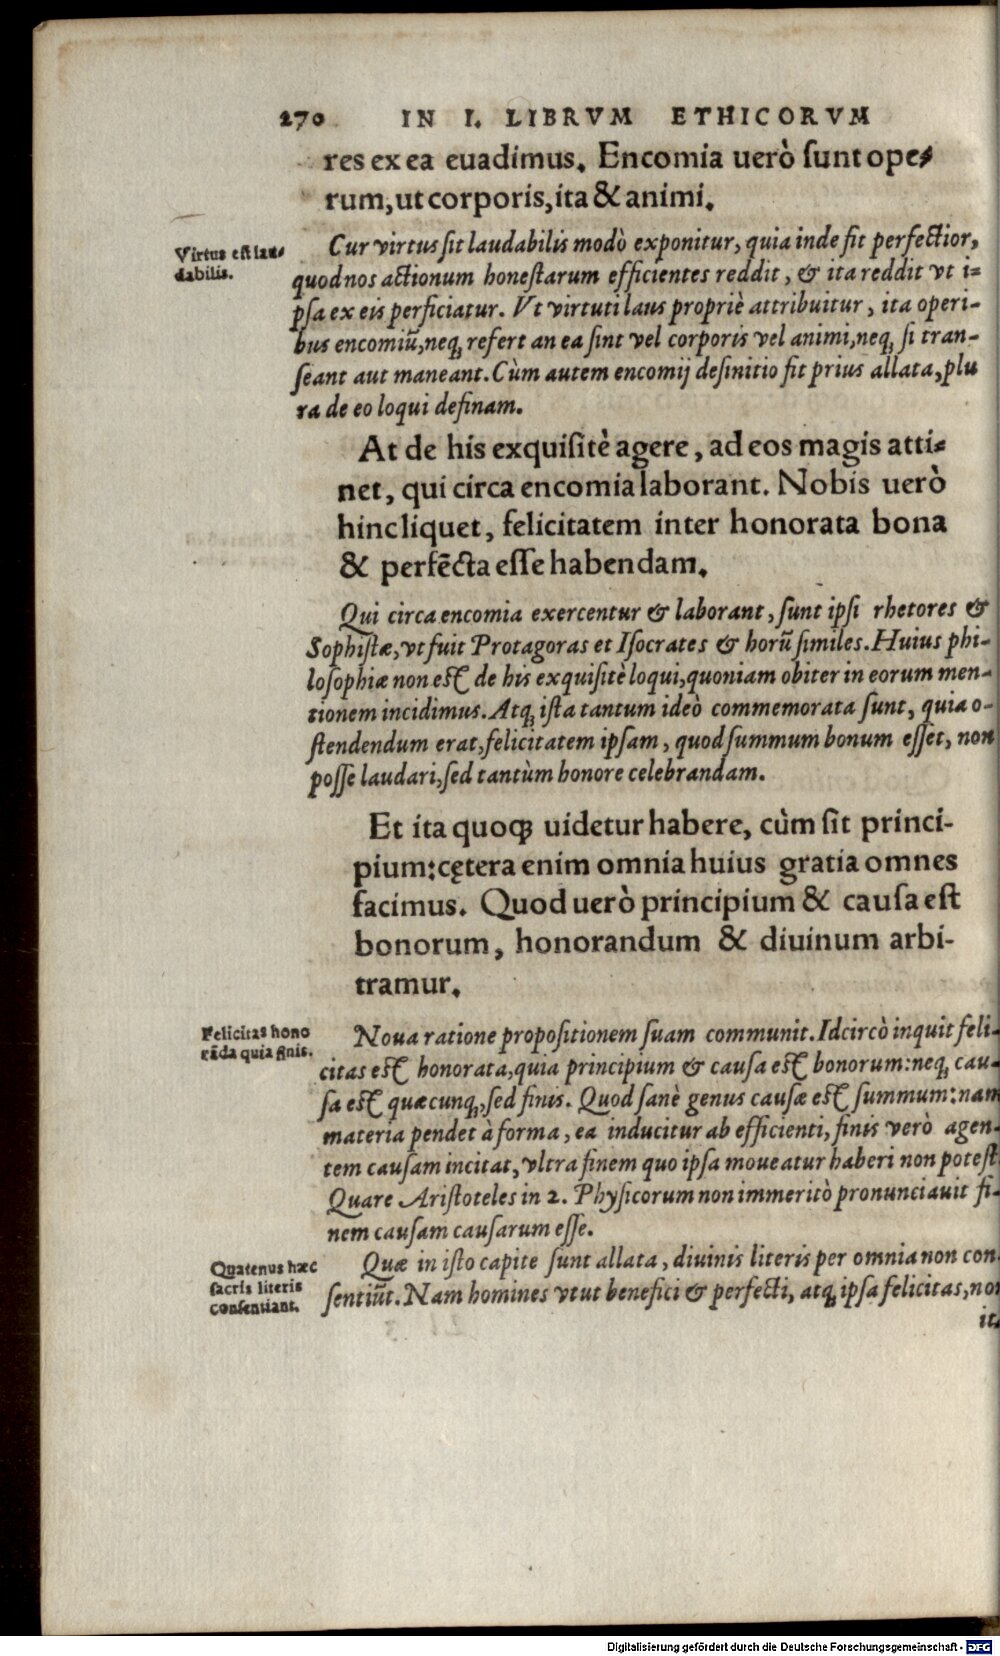 270 IN I. LIBRVM ETHICORVM
res ex ea euadimus. Encomia uerò ſunt ope-
rum, ut corporis, ita & animi.
Virtus eſt lau-
dabilis.
Cur virtus ſit laudabilis modò exponitur, quia inde fit perfectior,
quod nos actionum honeſtarum efficientes reddit, & ita reddit vt i=
pſa ex eis perficiatur. Vt virtuti laus propriè attribuitur, ita operi-
bus encomiũ, neq; refert an ea ſint vel corporis vel animi, neq; ſi tran-
ſeant aut maneant. Cùm autem encomij definitio ſit prius allata, plu
ra de eo loqui deſinam.
At de his exquiſitè agere, ad eos magis atti-
net, qui circa encomia laborant. Nobis uerò
hinc liquet, felicitatem inter honorata bona
& perfēcta eſſe habendam.
Qui circa encomia exercentur & laborant, ſunt ipſi rhetores &
Sophiſtæ, vt fuit Protagoras et Iſocrates & horũ ſimiles. Huius phi-
loſophiæ non eſt de his exquiſitè loqui, quoniam obiter in eorum men-
tionem incidimus. Atq; iſta tantum ideò commemorata ſunt, quia o-
ſtendendum erat, felicitatem ipſam, quod ſummum bonum eſſet, non
poſſe laudari, ſed tantùm honore celebrandam.
Et ita quoq; uidetur habere, cùm ſit princi-
pium: cętera enim omnia huius gratia omnes
facimus. Quod uerò principium & cauſa eſt
bonorum, honorandum & diuinum arbi-
tramur.
Felicitas hono
rāda quia finis.
Noua ratione propoſitionem ſuam communit. Idcircò inquit feli-
citas eſt honorata, quia principium & cauſa eſt bonorum: neq; cau-
ſa eſt quæcunq;, ſed finis. Quod ſanè genus cauſæ eſt ſummum: nam
materia pendet à forma, ea inducitur ab efficienti, finis verò agen-
tem cauſam incitat, vltra finem quo ipſa moueatur haberi non poteſt
Quare Ariſtoteles in 2. Phyſicorum non immeritò pronunciauit fi-
nem cauſam cauſarum eſſe.
Quatenus hæc
ſacris literis
conſentiant.
Quæ in iſto capite ſunt allata, diuinis literis per omnia non con
ſentiũt. Nam homines vtut benefici & perfecti, atq; ipſa felicitas, non
it
Digitalisierung gefördert durch die Deutsche Forschungsgemeinschaft - DFG